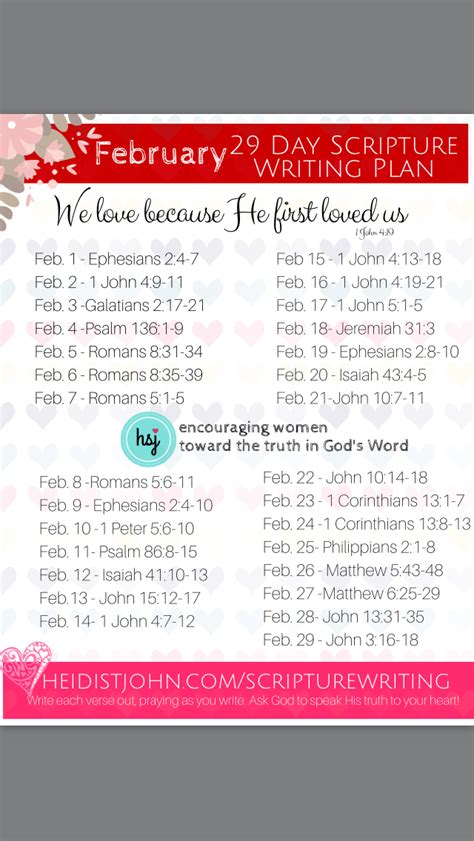 February 29 Day Scripture
Writing Plan
We love because He first loved us
1 John 4:19
Feb. 1 - Ephesians 2:4-7
Feb. 2 - 1 John 4:9-11
Feb. 3 -Galatians 2:17-21
Feb. 4 -Psalm 136:1-9
Feb. 5 - Romans 8:31-34
Feb. 6 - Romans 8:35-39
Feb. 7 - Romans 5:1-5
Feb. 15 - 1 John 4:13-18
Feb. 16 - 1 John 4:19-21
Feb. 17 -1 John 5:1-5
Feb. 18- Jeremiah 31:3
Feb. 19 - Ephesians 2:8-10
Feb. 20 - Isaiah 43:4-5
Feb. 21-John 10:7-11
hsj
encouraging women
toward the truth in God's Word
Feb. 8 -Romans 5:6-11
Feb. 9 - Ephesians 2:4-10
Feb. 10 -1 Peter 5:6-10
Feb. 11- Psalm 86:8-15
Feb. 12 - Isaiah 41:10-13
Feb.13 - John 15:12-17
Feb. 14- 1 John 4:7-12
Feb. 22 - John 10:14-18
Feb. 23 - 1 Corinthians 13:1-7
Feb. 24 -1 Corinthians 13:8-13
Feb. 25- Philippians 2:1-8
Feb. 26 - Matthew 5:43-48
Feb. 27 - Matthew 6:25-29
Feb. 28- John 13:31-35
Feb. 29 - John 3:16-18
HEIDISTJOHN.COM/SCRIPTUREWRITING
Write each verse out, praying as you write. Ask God to speak His truth to your heart!